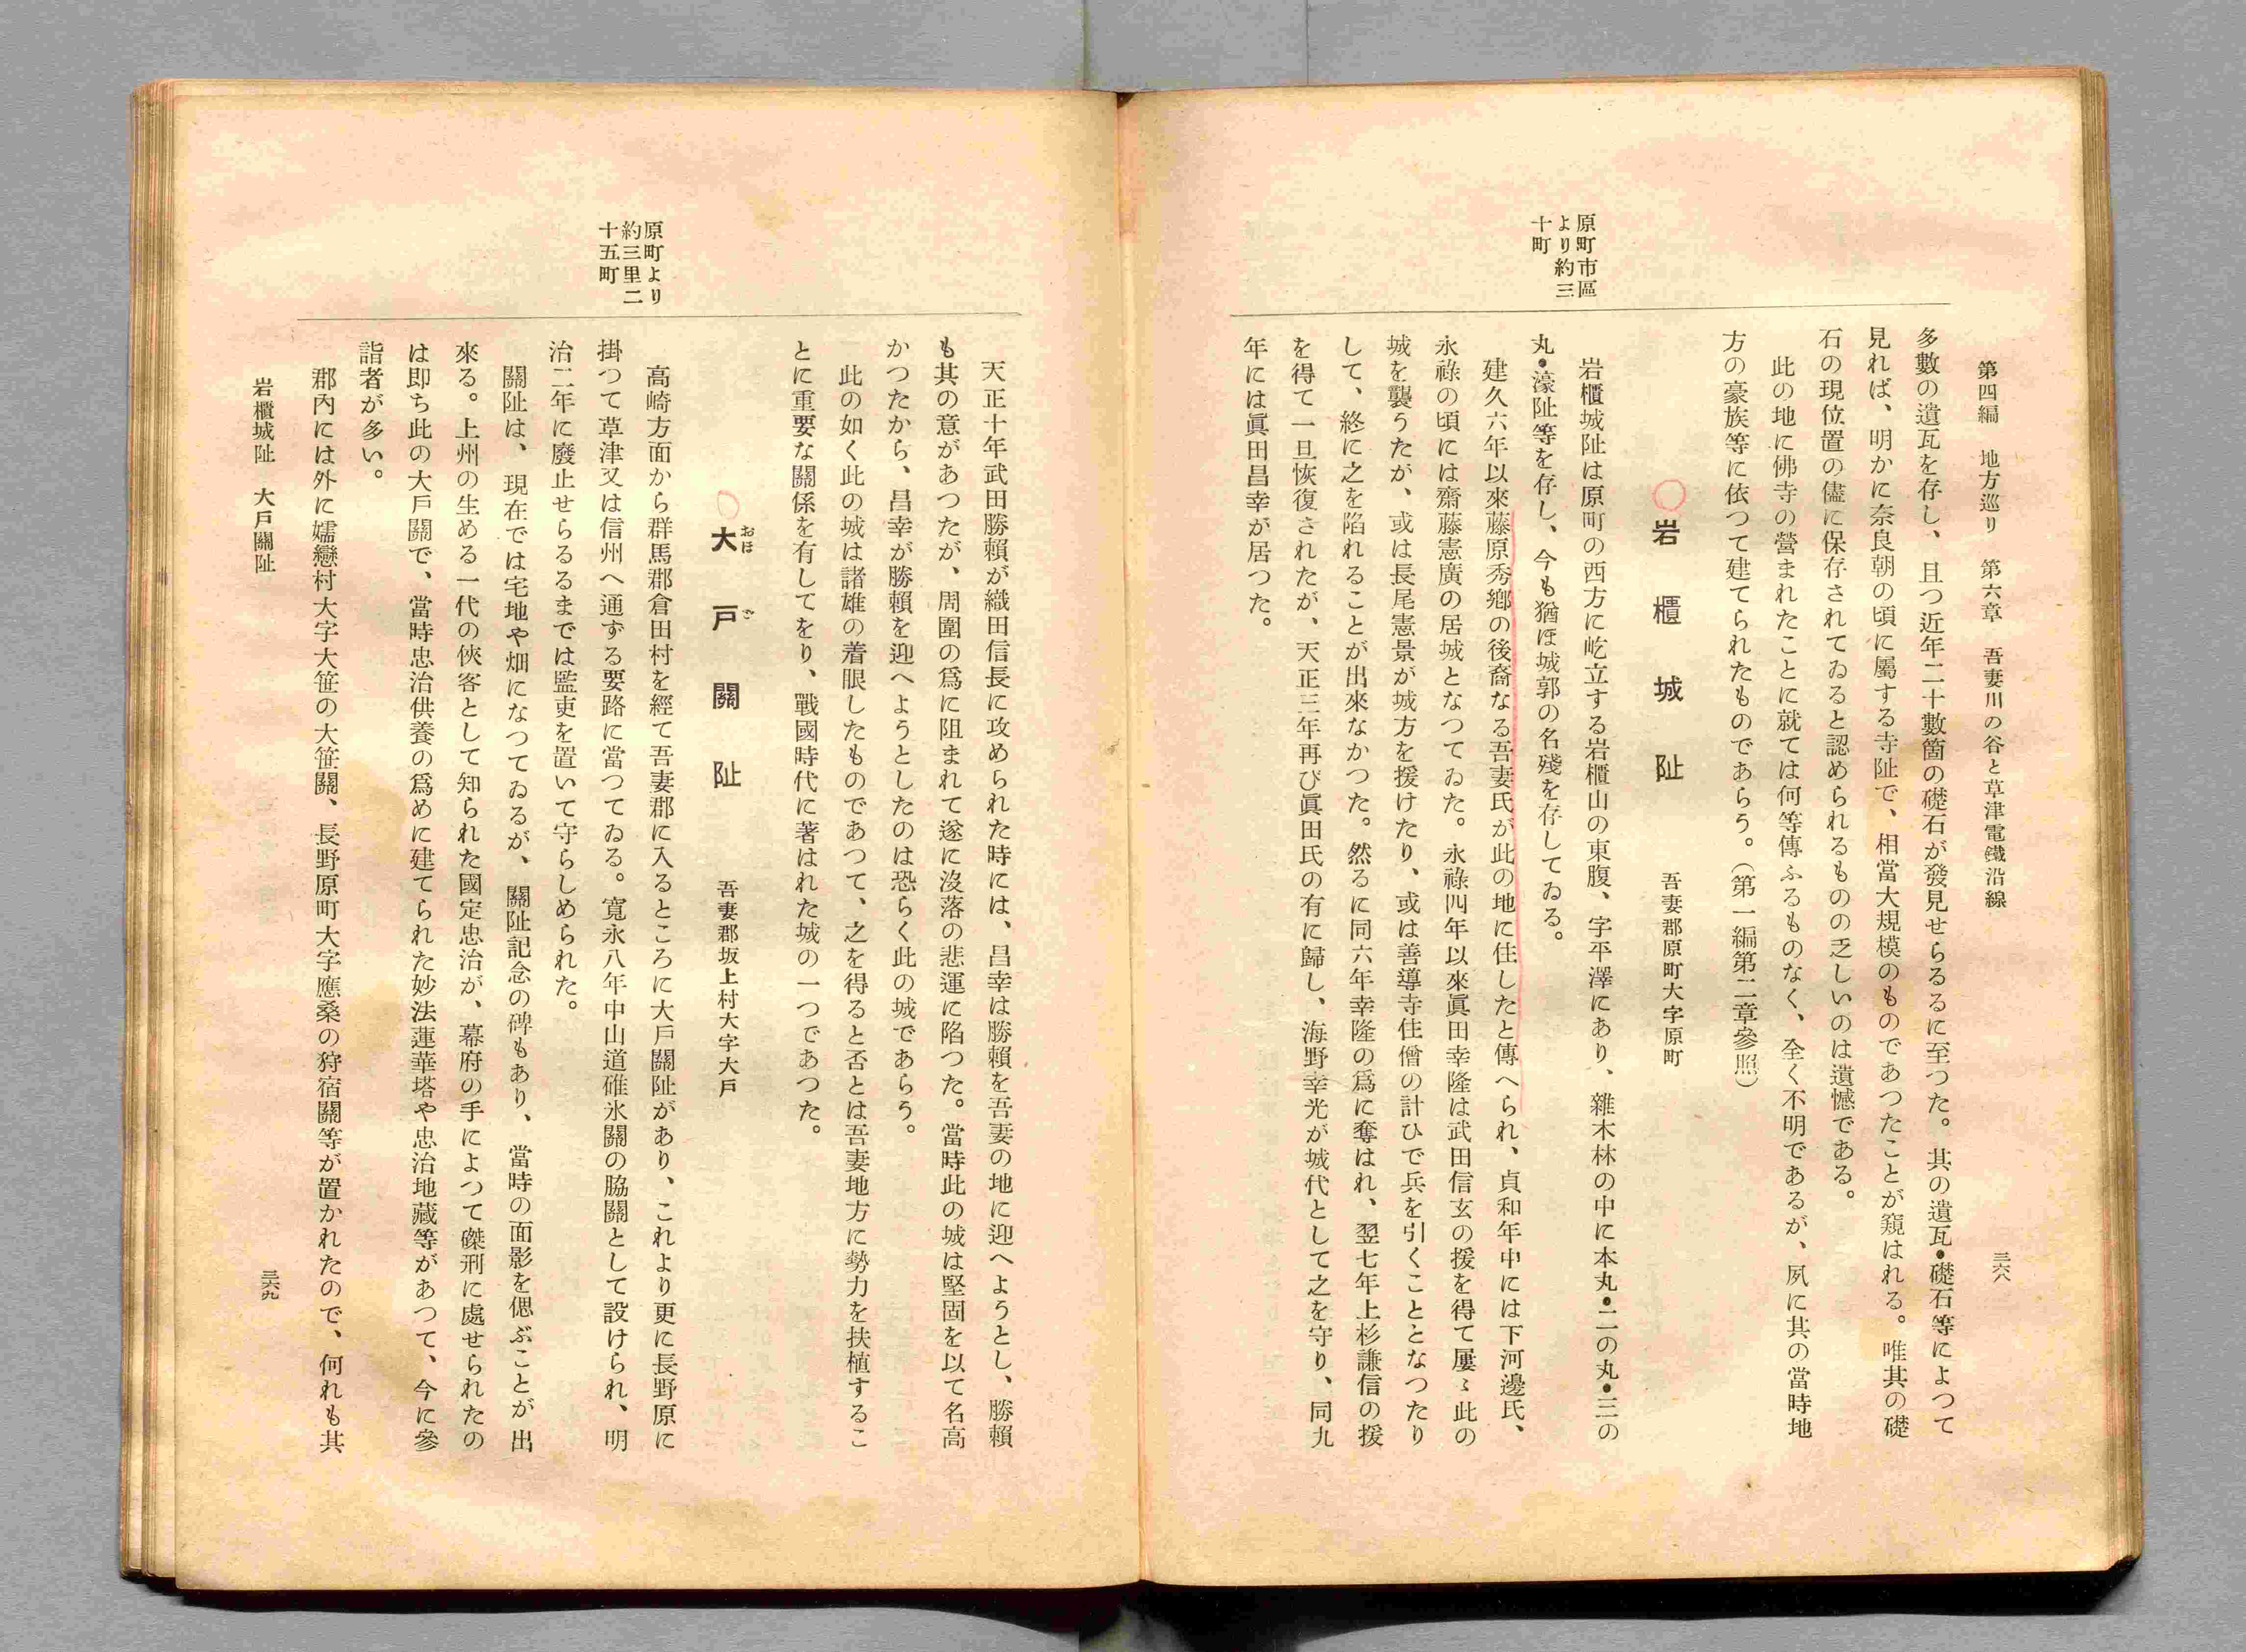 第四編　地方巡り　第六章　吾妻川の谷と草津電鐵沿線
三六八
多數の遺瓦を存し、且つ近年二十數箇の礎石が發見せらるるに至つた。其の遺瓦•礎石等によつて
見れば、明かに奈良朝の頃に屬する寺阯で、相當大規模のものであつたことが窺はれる。唯其の礎
石の現位置の儘に保存されてゐると認められるものの乏しいのは遺憾である。
此の地に佛寺の營まれたことに就ては何等傳ふるものなく、全く不明であるが、夙に其の當時地
方の豪族等に依つて建てられたものであらう。（第一編第二章參照）
○岩櫃城阯　吾妻郡原町大字原町
原町市區
より約三
十町
岩櫃城阯は原町の西方に屹立する岩櫃山の東腹、字平澤にあり、雜木林の中に本丸•二の丸•三の
丸•濠阯等を存し、今も猶ほ城郭の名殘を存してゐる。
建久六年以來藤原秀鄕の後裔なる吾妻氏が此の地に住したと傳へられ、貞和年中には下河邊氏、
永祿の頃には齋藤憲廣の居城となつてゐた。永祿四年以來眞田幸隆は武田信玄の援を得て屢〻此の
城を襲うたが、或は長尾憲景が城方を援けたり、或は善導寺住僧の計ひで兵を引くこととなつたり
して、終に之を陷れることが出來なかつた。然るに同六年幸隆の爲に奪はれ、翌七年上杉謙信の援
を得て一旦恢復されたが、天正三年再び眞田氏の有に歸し、海野幸光が城代として之を守り、同九
年には眞田昌幸が居つた。
天正十年武田勝賴が織田信長に攻められた時には、昌幸は勝賴を吾妻の地に迎へようとし、勝賴
も其の意があつたが、周圍の爲に阻まれて遂に沒落の悲運に陷つた。當時此の城は堅固を以て名高
かつたから、昌幸が勝賴を迎へようとしたのは恐らく此の城であらう。
此の如く此の城は諸雄の着眼したものであつて、之を得ると否とは吾妻地方に勢力を扶植するこ
とに重要な關係を有してをり、戰國時代に著はれた城の一つであつた。
○大戶關阯　吾妻郡坂上村大字大戶
おほ　ど
原町より
約三里二
十五町
高崎方面から群馬郡倉田村を經て吾妻郡に入るところに大戶關阯があり、これより更に長野原に
掛つて草津又は信州へ通ずる要路に當つてゐる。寬永八年中山道碓氷關の脇關として設けられ、明
治二年に廢止せらるるまでは監吏を置いて守らしめられた。
關阯は、現在では宅地や畑になつてゐるが、關阯記念の碑もあり、當時の面影を偲ぶことが出
來る。上州の生める一代の俠客として知られた國定忠治が、幕府の手によつて磔刑に處せられたの
は卽ち此の大戶關で、當時忠治供養の爲めに建てられた妙法蓮華塔や忠治地藏等があつて、今に參
詣者が多い。
郡內には外に嬬戀村大字大笹の大笹關、長野原町大字應桑の狩宿關等が置かれたので、何れも其
岩櫃城阯　大戶關阯
三六九